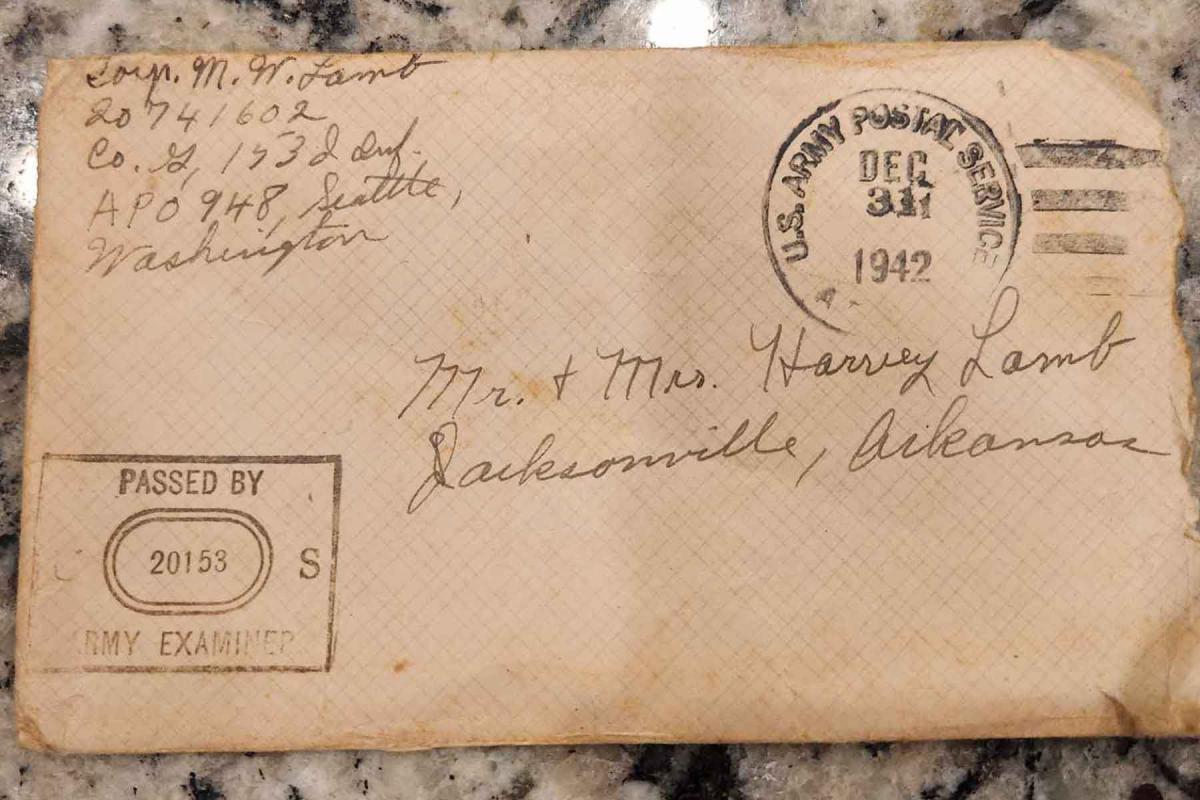 Corp. M. W. Lamb
20741602
Co. G, 153d Inf.
APO 948, Seattle,
Washington
U.S. ARMY POSTAL SERVICE
DEC
31
1942
A
Mr. & Mrs. Harvey Lamb
Jacksonville, Arkansas
PASSED BY
20153 S
ARMY EXAMINER